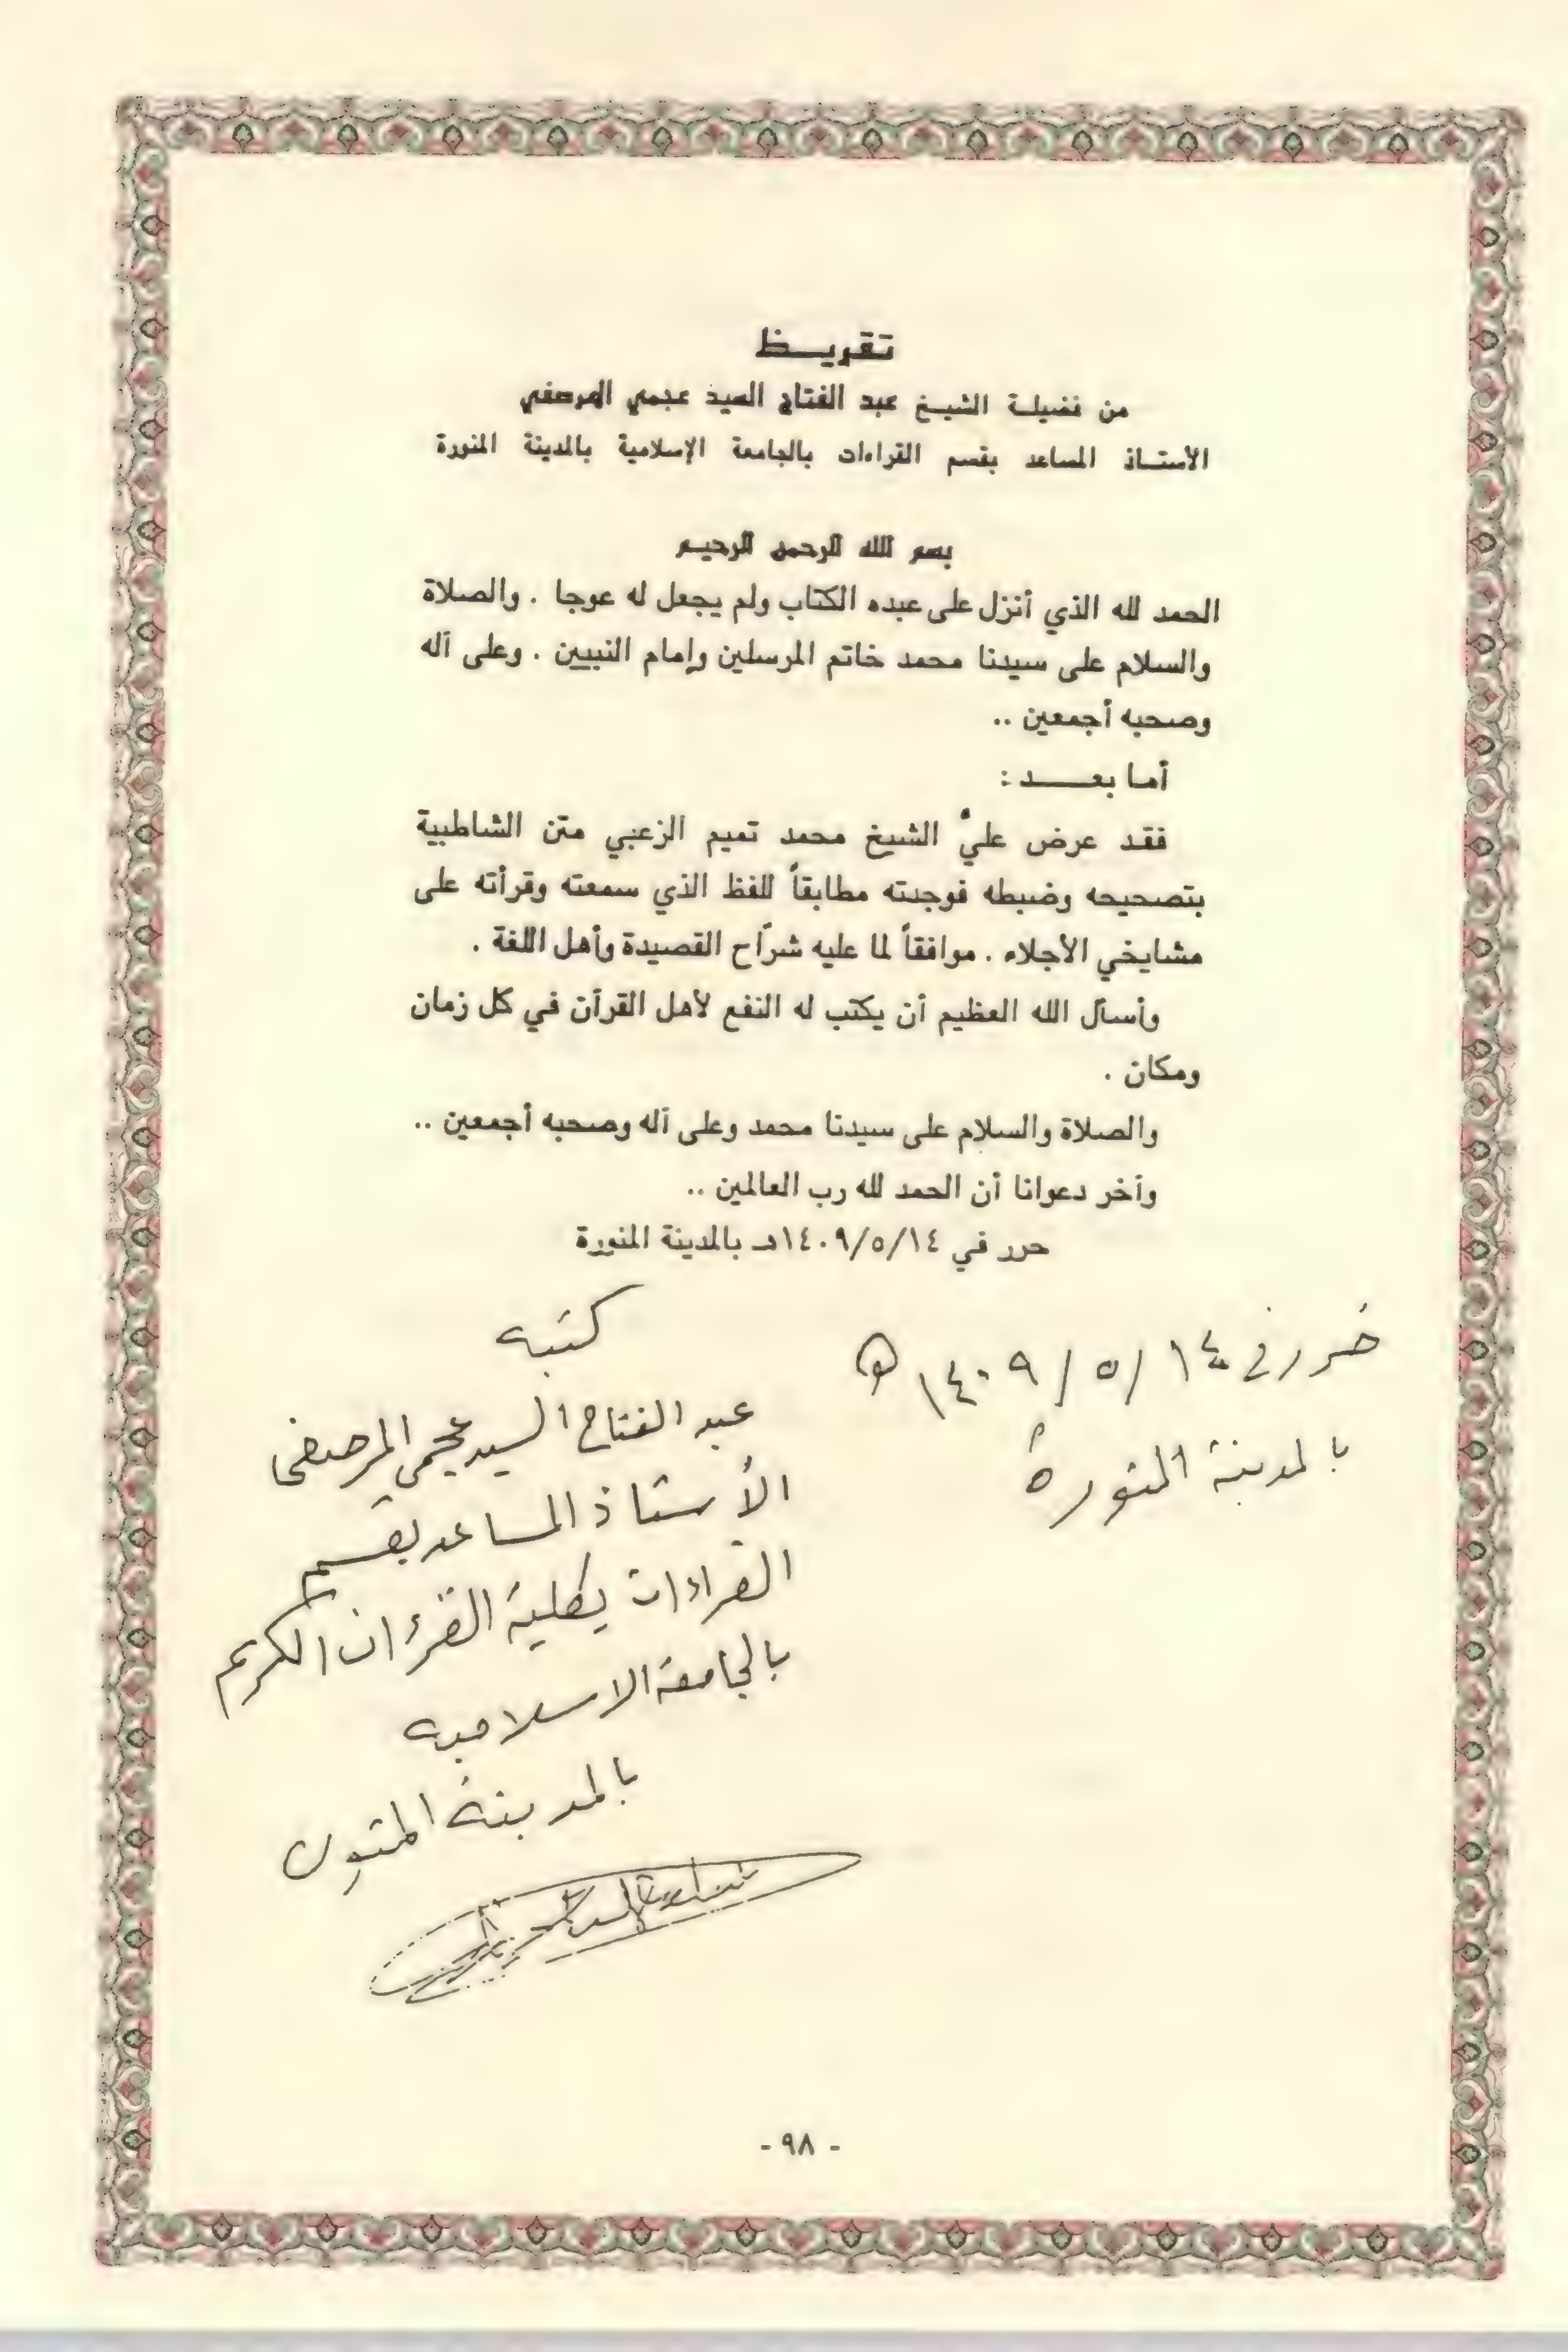 تقريـــظ
من فضيلة الشيـخ عبد الفتاح السيد عجمي المرصفي
الأستـاذ المساعد بقسم القراءات بالجامعة الإسلامية بالمدينة المنورة
بسم الله الرحمن الرحيم
الحمد لله الذي أنزل على عبده الكتاب ولم يجعل له عوجا . والصلاة
والسلام على سيدنا محمد خاتم المرسلين وإمام النبيين . وعلى آله
وصحبه أجمعين ..
أمـا بعـــــد :
فقـد عرض عليَّ الشيخ محمد تميم الزعبي متن الشاطبية
بتصحيحه وضبطه فوجدته مطابقاً للفظ الذي سمعته وقرأته على
مشايخي الأجلاء . موافقاً لما عليه شرَّاح القصيدة وأهل اللغة .
وأسأل الله العظيم أن يكتب له النفع لأهل القرآن في كل زمان
ومكان .
والصلاة والسلام على سيدنا محمد وعلى آله وصحبه أجمعين ..
وآخر دعوانا أن الحمد لله رب العالمين ..
حرر في ١٤٠٩/٥/١٤هـ بالمدينة المنورة
حرر في ١٤ / ٥ / ١٤٠٩ هـ
بالمدينة المنورة
كتبه
عبد الفتاح السيد عجمي المرصفى
الأستاذ المساعد بقسم
القراءات بكلية القرءان الكريم
بالجامعة الاسلاميه
بالمدينة المنوره
- ٩٨ -